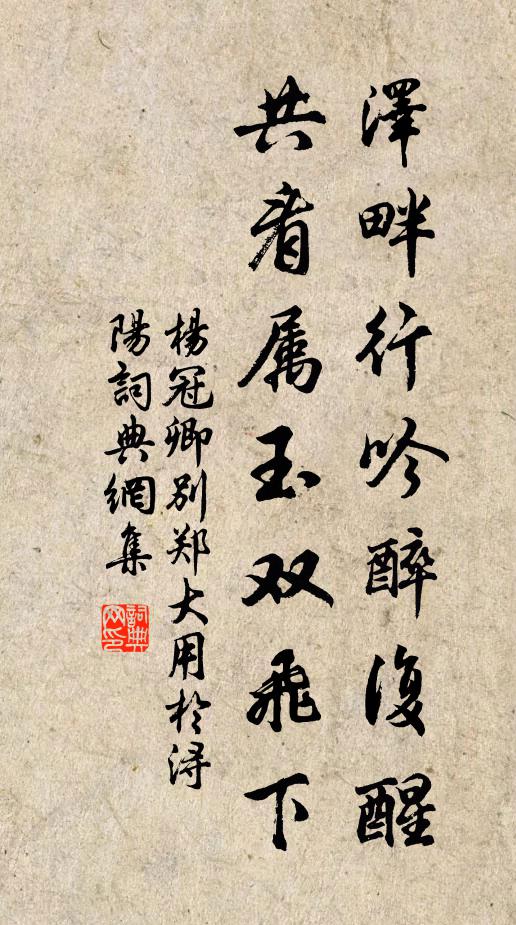 澤畔行吟醉復醒
共看属玉双飛下
楊冠卿别郑大用於浔
陽詞典網集
詞典
网印